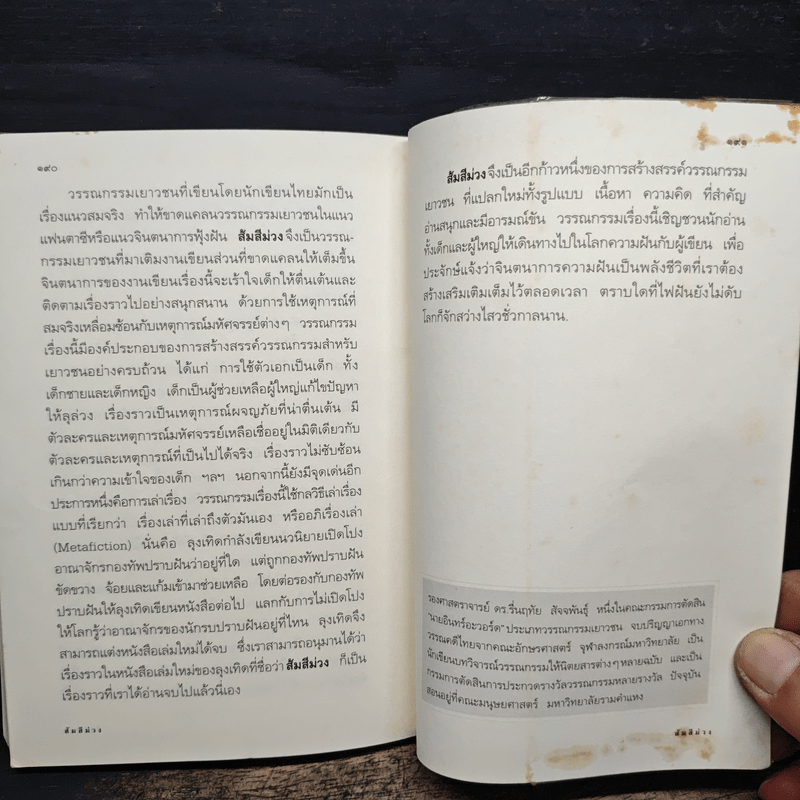 ๑๙๐
วรรณกรรมเยาวชนที่เขียนโดยนักเขียนไทยมักเป็น
เรื่องแนวสมจริง ทำให้ขาดแคลนวรรณกรรมเยาวชนในแนว
แฟนตาซีหรือแนวจินตนาการฟุ้งฝัน ส้มสีม่วง จึงเป็นวรรณ-
กรรมเยาวชนที่มาเติมงานเขียนส่วนที่ขาดแคลนให้เต็มขึ้น
จินตนาการของงานเขียนเรื่องนี้จะเร้าใจเด็กให้ตื่นเต้นและ
ติดตามเรื่องราวไปอย่างสนุกสนาน ด้วยการใช้เหตุการณ์ที่
สมจริงเหลื่อมซ้อนกับเหตุการณ์มหัศจรรย์ต่างๆ วรรณกรรม
เรื่องนี้มีองค์ประกอบของการสร้างสรรค์วรรณกรรมสำหรับ
เยาวชนอย่างครบถ้วน ได้แก่ การใช้ตัวเอกเป็นเด็ก ทั้ง
เด็กชายและเด็กหญิง เด็กเป็นผู้ช่วยเหลือผู้ใหญ่แก้ไขปัญหา
ให้ลุล่วง เรื่องราวเป็นเหตุการณ์ผจญภัยที่น่าตื่นเต้น มี
ตัวละครและเหตุการณ์มหัศจรรย์เหลือเชื่ออยู่ในมิติเดียวกับ
ตัวละครและเหตุการณ์ที่เป็นไปได้จริง เรื่องราวไม่ซับซ้อน
เกินกว่าความเข้าใจของเด็ก ฯลฯ นอกจากนี้ยังมีจุดเด่นอีก
ประการหนึ่งคือการเล่าเรื่อง วรรณกรรมเรื่องนี้ใช้กลวิธีเล่าเรื่อง
แบบที่เรียกว่า เรื่องเล่าที่เล่าถึงตัวมันเอง หรืออภิเรื่องเล่า
(Metafiction) นั่นคือ ลุงเทิดกำลังเขียนนวนิยายเปิดโปง
อาณาจักรกองทัพปราบฝันว่าอยู่ที่ใด แต่ถูกกองทัพปราบฝัน
ขัดขวาง จ้อยและแก้มเข้ามาช่วยเหลือ โดยต่อรองกับกองทัพ
ปราบฝันให้ลุงเทิดเขียนหนังสือต่อไป แลกกับการไม่เปิดโปง
ให้โลกรู้ว่าอาณาจักรของนักรบปราบฝันอยู่ที่ไหน ลุงเทิดจึง
สามารถแต่งหนังสือเล่มใหม่ได้จบ ซึ่งเราสามารถอนุมานได้ว่า
เรื่องราวในหนังสือเล่มใหม่ของลุงเทิดที่ชื่อว่า ส้มสีม่วง ก็เป็น
เรื่องราวที่เราได้อ่านจบไปแล้วนี่เอง
ส้มสีม่วง
๑๙๑
ส้มสีม่วง จึงเป็นอีกก้าวหนึ่งของการสร้างสรรค์วรรณกรรม
เยาวชน ที่แปลกใหม่ทั้งรูปแบบ เนื้อหา ความคิด ที่สำคัญ
อ่านสนุกและมีอารมณ์ขัน วรรณกรรมเรื่องนี้เชิญชวนนักอ่าน
ทั้งเด็กและผู้ใหญ่ให้เดินทางไปในโลกความฝันกับผู้เขียน เพื่อ
ประจักษ์แจ้งว่าจินตนาการความฝันเป็นพลังชีวิตที่เราต้อง
สร้างเสริมเติมเต็มไว้ตลอดเวลา ตราบใดที่ไฟฝันยังไม่ดับ
โลกก็จักสว่างไสวชั่วกาลนาน.
รองศาสตราจารย์ ดร.รื่นฤทัย สัจจพันธุ์ หนึ่งในคณะกรรมการตัดสิน
"นายอินทร์อะวอร์ด" ประเภทวรรณกรรมเยาวชน จบปริญญาเอกทาง
วรรณคดีไทยจากคณะอักษรศาสตร์ จุฬาลงกรณ์มหาวิทยาลัย เป็น
นักเขียนบทวิจารณ์วรรณกรรมให้นิตยสารต่างๆหลายฉบับ และเป็น
กรรมการตัดสินการประกวดรางวัลวรรณกรรมหลายรางวัล ปัจจุบัน
สอนอยู่ที่คณะมนุษยศาสตร์ มหาวิทยาลัยรามคำแหง
ส้มสีม่วง